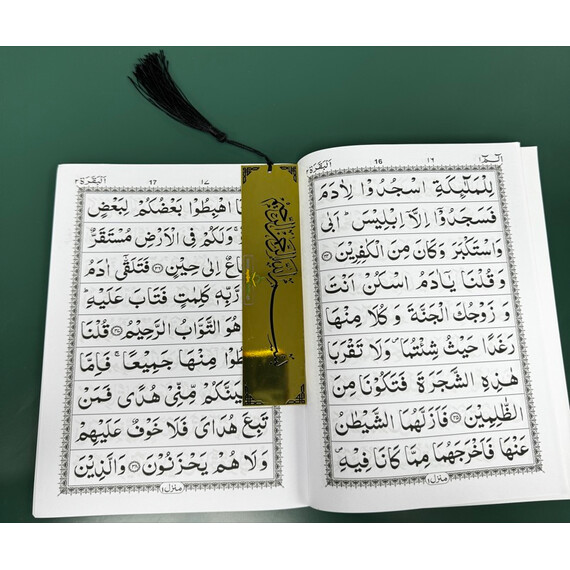 الٓمّٓ ١ ١٦ 16 البقرة ٢
لِلْمَلٰٓئِكَةِ اسْجُدُوْا لِاٰدَمَ
فَسَجَدُوْٓا اِلَّآ اِبْلِيْسَ ؕ اَبٰى
وَاسْتَكْبَرَ وَكَانَ مِنَ الْكٰفِرِيْنَ ﴿٣٤﴾
وَ قُلْنَا يٰٓاٰدَمُ اسْكُنْ اَنْتَ
وَ زَوْجُكَ الْجَنَّةَ وَ كُلَا مِنْهَا
رَغَدًا حَيْثُ شِئْتُمَا ۪ وَلَا تَقْرَبَا
هٰذِهِ الشَّجَرَةَ فَتَكُوْنَا مِنَ
الظّٰلِمِيْنَ ﴿٣٥﴾ فَاَزَلَّهُمَا الشَّيْطٰنُ
عَنْهَا فَاَخْرَجَهُمَا مِمَّا كَانَا فِيْهِ ۪
منزل ١
بسم الله الرحمن الرحيم
١٧ 17 البقرة ٢
اهْبِطُوْا بَعْضُكُمْ لِبَعْضٍ
وَلَكُمْ فِى الْاَرْضِ مُسْتَقَرٌّ
اِلٰى حِيْنٍ ﴿٣٦﴾ فَتَلَقّٰٓى اٰدَمُ
رَّبِّهٖ كَلِمٰتٍ فَتَابَ عَلَيْهِ ؕ
هُوَ التَّوَّابُ الرَّحِيْمُ ﴿٣٧﴾ قُلْنَا
مِنْهَا جَمِيْعًا ۚ فَاِمَّا
مِّنِّىْ هُدًى فَمَنْ
تَبِعَ هُدَاىَ فَلَا خَوْفٌ عَلَيْهِمْ
وَلَا هُمْ يَحْزَنُوْنَ ﴿٣٨﴾ وَالَّذِيْنَ
منزل ١